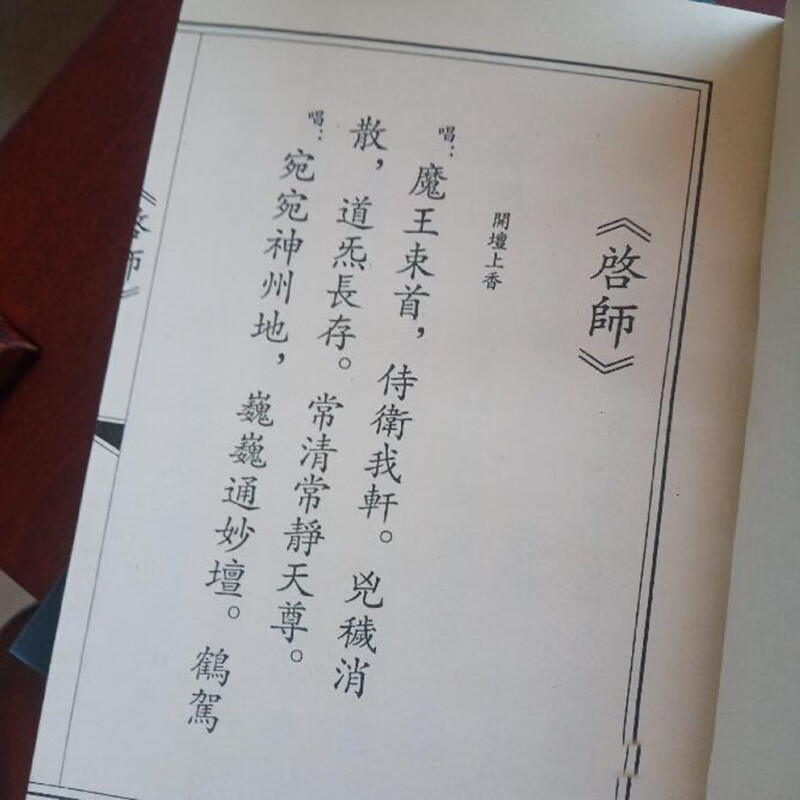 《啓師》
開壇上香
唱：魔王束首，侍衛我軒。兇穢消
散，道炁長存。常清常靜天尊。
唱：宛宛神州地，巍巍通妙壇。鶴駕
《啓師》